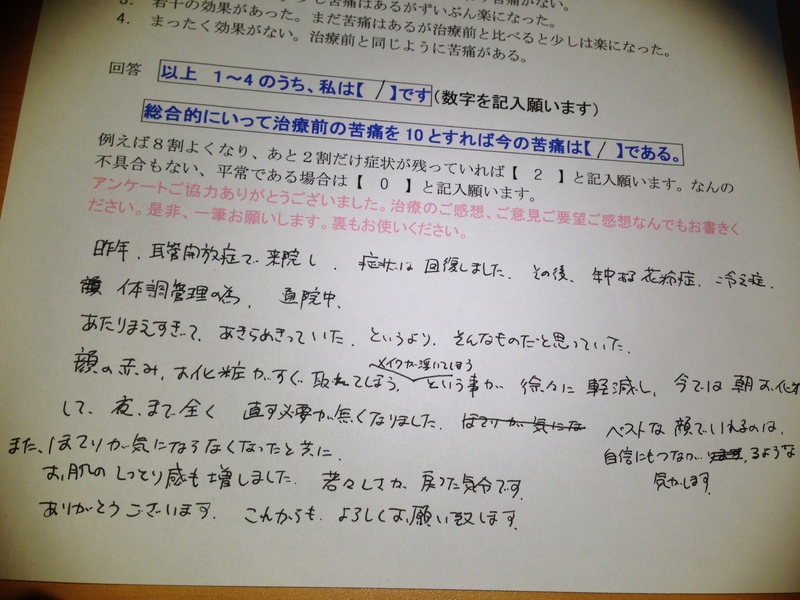 3. 若干の効果があった。まだ苦痛はあるが治療前と比べると少しは楽になった。
4. まったく効果がない。治療前と同じように苦痛がある。
回答 以上 1～4のうち、私は【 / 】です(数字を記入願います)
総合的にいって治療前の苦痛を10とすれば今の苦痛は【 / 】である。
例えば8割よくなり、あと2割だけ症状が残っていれば【 2 】と記入願います。なんの
不具合もない、平常である場合は【 0 】と記入願います。
アンケートご協力ありがとうございました。治療のご感想、ご意見ご要望ご感想なんでもお書きく
ださい。是非、一筆お願いします。裏もお使いください。
昨年、耳管開放症で来院し、症状は回復しました。その後、年中ある花粉症、冷え症、
体調管理の為、通院中。
あたりまえすぎて、あきらめきっていた、というより、そんなものだと思っていた、
メイクが浮いてしまう
顔の赤み、お化粧がすぐ取れてしまう、という事が徐々に軽減し、今では朝お化粧
して、夜まで全く直す必要が無くなりました。ほてりが気にな ベストな顔でいれるのは、
また、ほてりが気にならなくなったと共に、 自信にもつながるような
お肌のしっとり感も増しました。若々しさが戻った気分です。 気がします。
ありがとうございます。これからも、よろしくお願い致します。